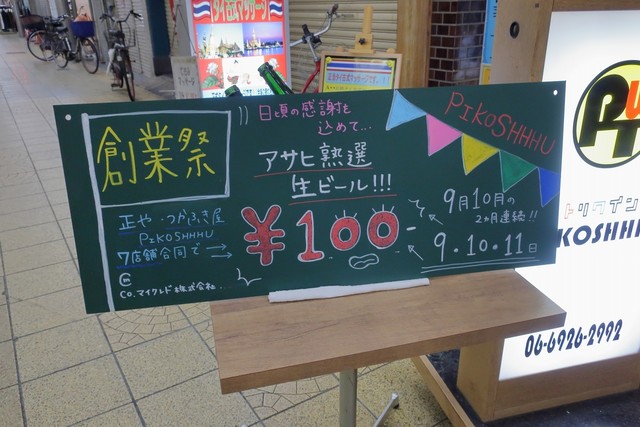 タイ古式マッサージ
創業祭
日頃の感謝を
込めて...
アサヒ熟選
生ビール!!!
¥100-
PIKOSHHHU
9月10月の
2カ月連続!!
9・10・11日
正や・つかふき屋
PIKOSHHHU
7店舗合同で→
CO.マイクレド株式会社...
トリタイン
KOSHHH
06-6926-2992